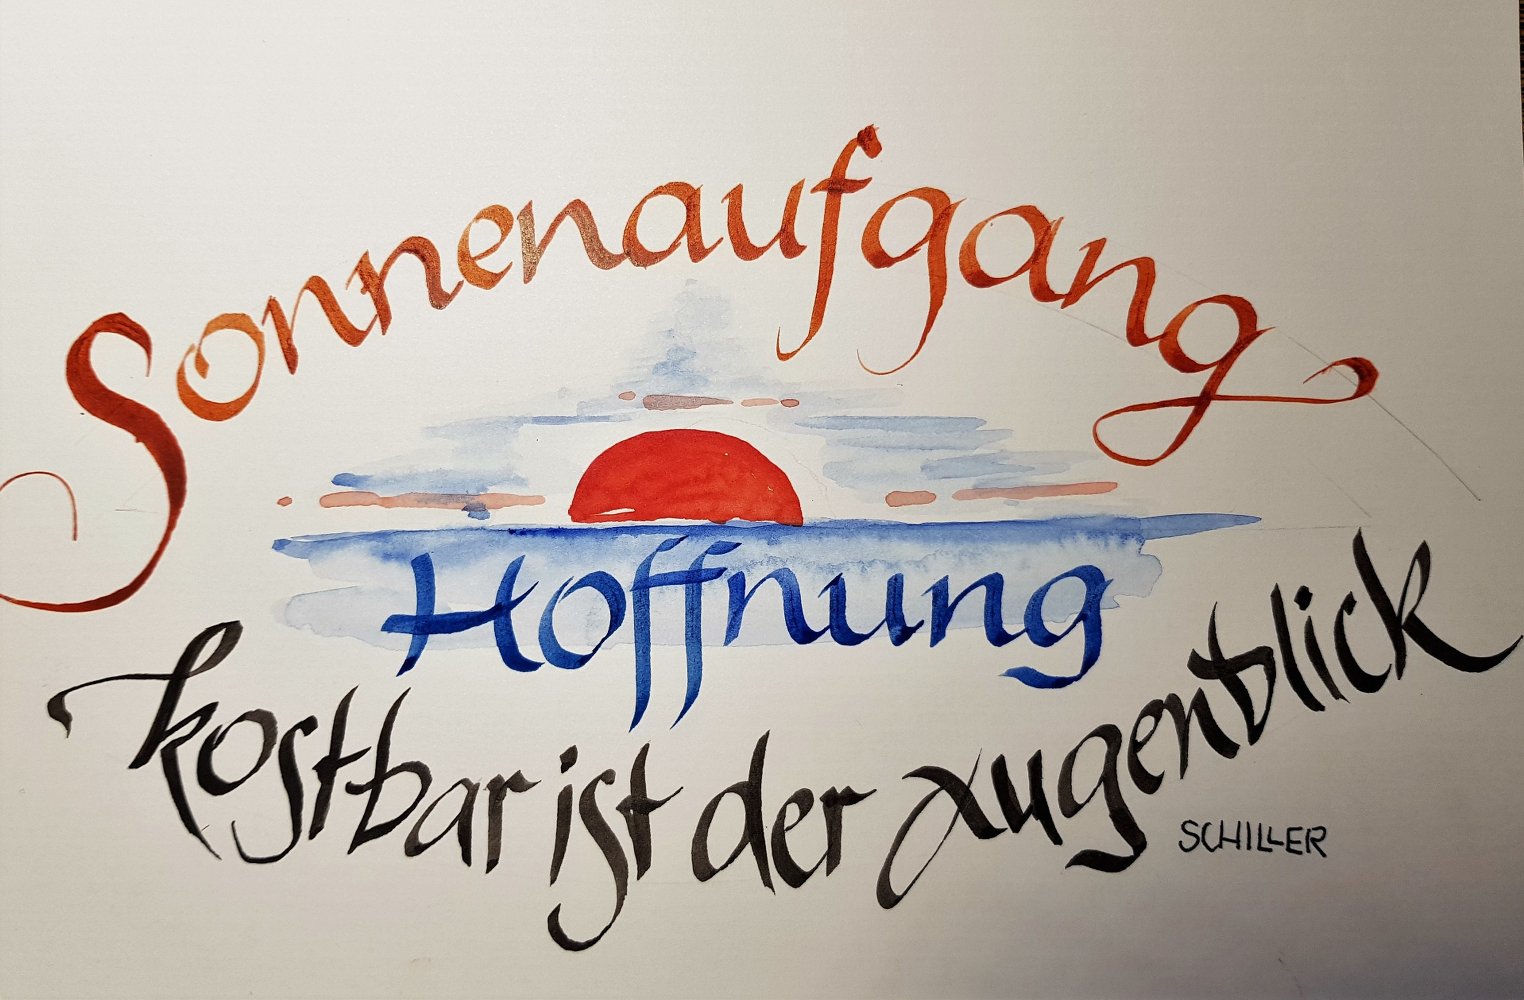 Sonnenaufgang
Hoffnung
kostbar ist der Augenblick
SCHILLER